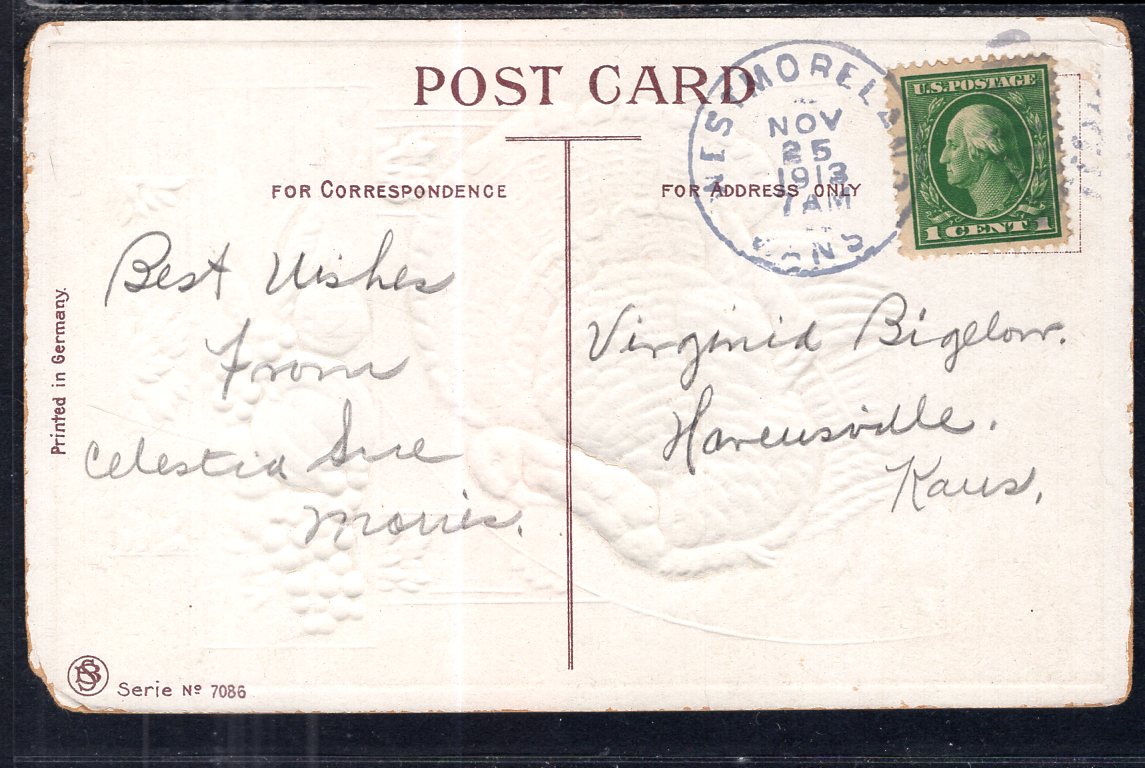 POST CARD
FOR CORRESPONDENCE
FOR ADDRESS ONLY
WESTMORELAND
NOV
25
1913
7AM
KANS
U.S. POSTAGE
1 CENT 1
Best Wishes
From
Celestia Sue
Morris.
Virginia Bigelow.
Havensville.
Kans.
Printed in Germany.
Serie Nº 7086